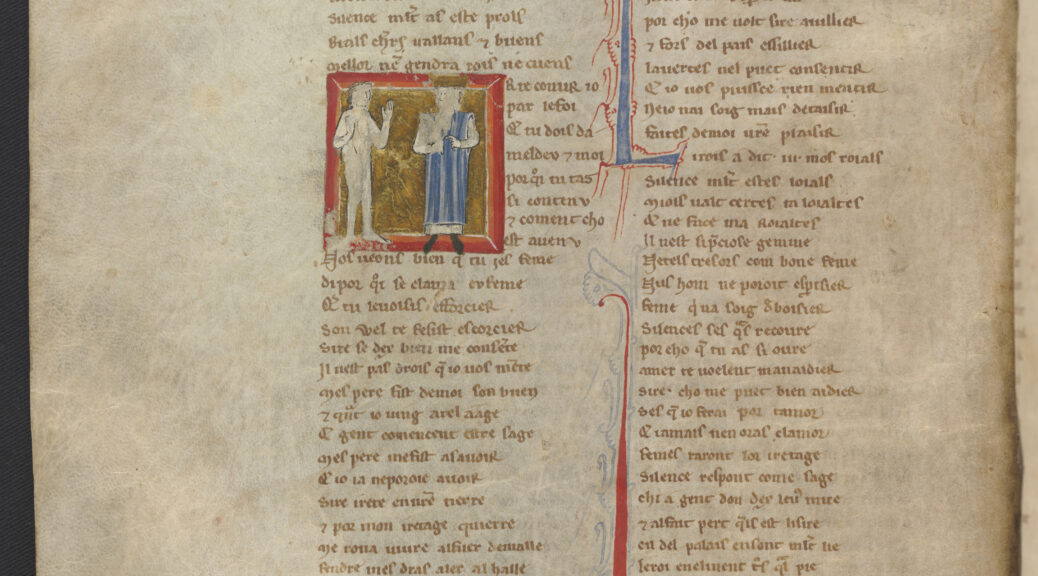 Silence mlt as este prols
Bials chrs vallans ⁊ buens
Mellor ne gendra rois ne cuens
Re contir io
par le foi
Que tu dois da
meldeu ⁊ moi
por qi tu tas
si contenu
⁊ coment cho
est avenu
Nos veons bien q tu ies feme
di por qi se clama eufeme
Q tu le volsis efforcier
Son wel te fesist escorcier
Sire se dex bien me consente
Il nest pas drois q io vos mente
Mes pere fist de moi son buen
⁊ qnt io ving a tel aage
Que gent comencent estre sage
Mes pere me fist a savoir
Q io ia ne poroie avoir
Sire irete en vre tierre
⁊ por mon iretage quierre
Me rova vivre al fuer de malle
fendre mes dras aler al halle
por cho me volt sire avillier
⁊ fors del pais essillier
la vertes nel puet consentir
Q io vos puisse rien mentir
Ne io nai soig mais de taisir
faites de moi vre plaisir
Li rois a dit iu mos roials
Silence mlt estes loials
Miols valt certes ta loialtes
Q ne face ma roialtes
Il nest si pciose gemme
Ne tels tresors com bone feme
Nus hom ne poroit esprisier
feme qi na soig d boisier
Silences ses qs recoure
por cho q tu as si ovre
amer te voelent manaidier
Sire cho me puet bien aidier
Ses q io ferai por tamor
Q iamais nen oras clamor
femes raront lor iretage
Silence respont come sage
chi a gent don dex leu mire
⁊ alsint pert qis est lisire
en del palais ensont mlt lie
le roi enclinent tsqal pie